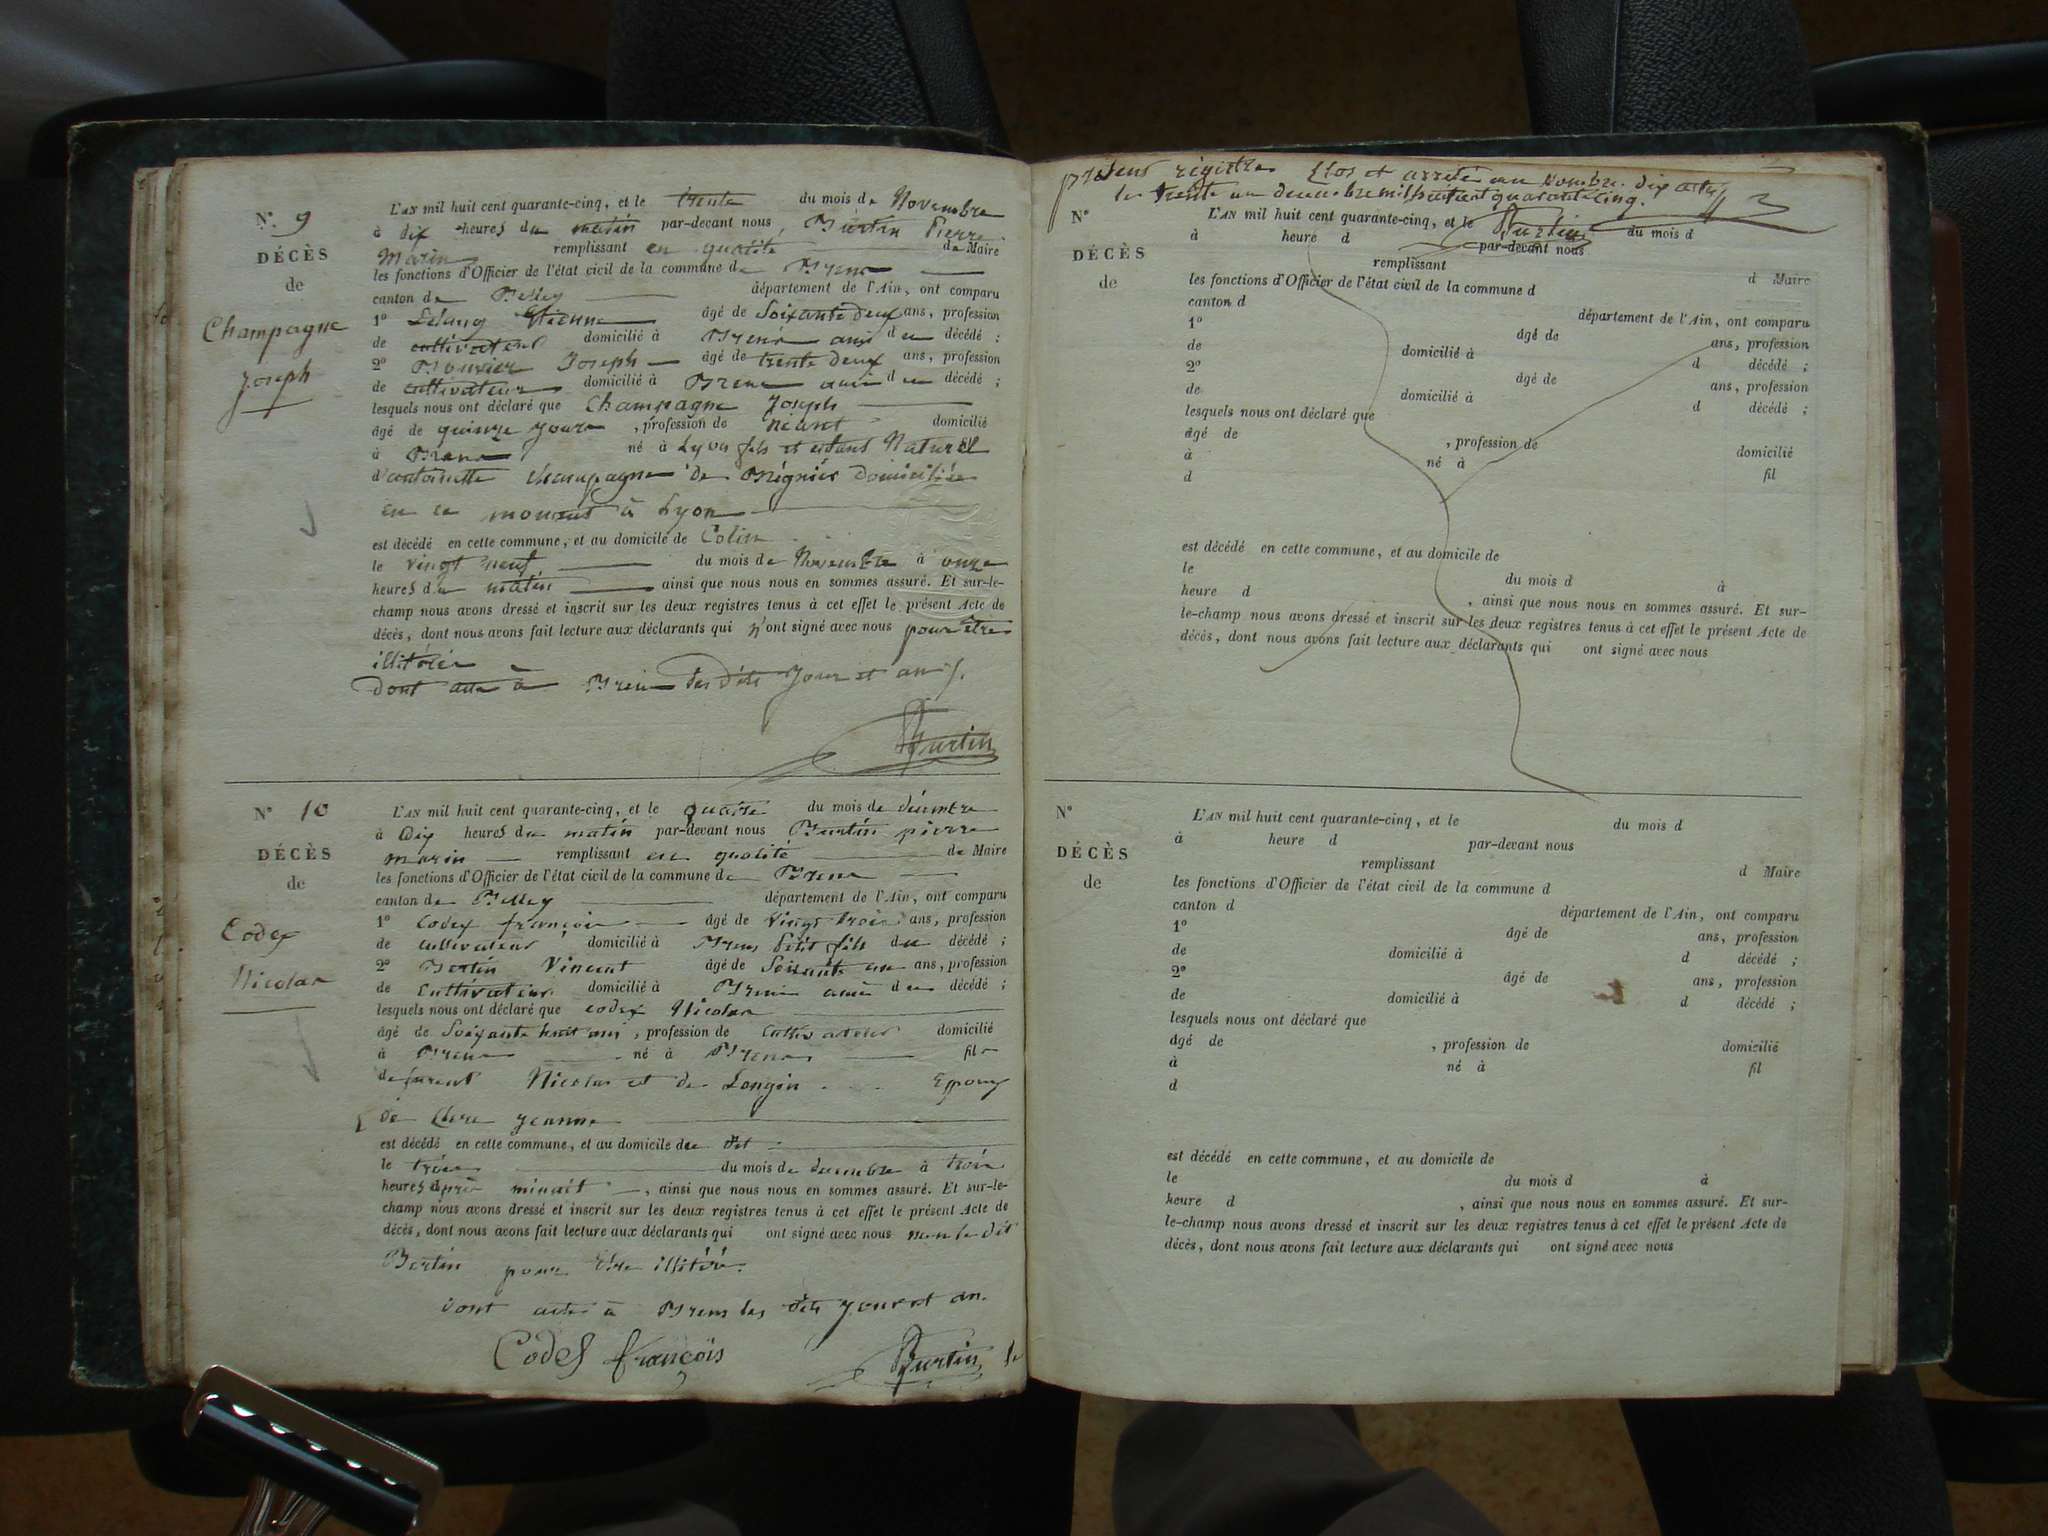 N.° 9
DÉCÈS
de
Champagne
Joseph
L'AN mil huit cent quarante-cinq, et le trente du mois de Novembre
à dix heures du matin par-devant nous, Burtin Pierre
Marin remplissant en qualité de Maire
les fonctions d'Officier de l'état civil de la commune de Brens
canton de Belley département de l'Ain, ont comparu
1° Etienne âgé de Soixante deux ans, profession
de cultivateur domicilié à Brens ami du décédé ;
2° Bouvier Joseph âgé de trente deux ans, profession
de cultivateur domicilié à Brens ami du décédé ;
lesquels nous ont déclaré que Champagne Joseph
âgé de quinze jours, profession de néant domicilié
à Brens né à Lyon fils et enfant Naturel
d'antoinette champagne de Brégnier Domiciliée
en ce moment à Lyon
est décédé en cette commune, et au domicile de Colin
le vingt neuf du mois de Novembre à onze
heures du matin ainsi que nous nous en sommes assuré. Et sur-le-
champ nous avons dressé et inscrit sur les deux registres tenus à cet effet le présent Acte de
décès, dont nous avons fait lecture aux déclarants qui n'ont signé avec nous pour être
illitéré
Dont acte à Brens les dits Jour et an
Burtin
N° 10
DÉCÈS
de
Codex
Nicolas
L'AN mil huit cent quarante-cinq, et le quatre du mois de décembre
à Dix heures du matin par-devant nous Burtin pierre
marin remplissant en qualité de Maire
les fonctions d'Officier de l'état civil de la commune de Brens
canton de Belley département de l'Ain, ont comparu
1° Codex françois âgé de vingt trois ans, profession
de cultivateur domicilié à Brens Petit fils du décédé ;
2° Bertin Vincent âgé de Soixante un ans, profession
de Cultivateur domicilié à Brens ami du décédé ;
lesquels nous ont déclaré que codex Nicolas
âgé de Soixante huit ans, profession de cultivateur domicilié
à Brens né à Brens fils
de Nicolas et de Longin Epoux
de Clere jeanne
est décédé en cette commune, et au domicile du dit
le trois du mois de decembre à trois
heures après minuit, ainsi que nous nous en sommes assuré. Et sur-le-
champ nous avons dressé et inscrit sur les deux registres tenus à cet effet le présent Acte de
décès, dont nous avons fait lecture aux déclarants qui ont signé avec nous non le dit
Bertin pour Etre illitéré.
Dont acte à Brens les dits jour et an.
Codex françois
Burtin
présent régistre Clos et arrêté au Nombre dix actes
le trente un decembre mil huit cent quarante cinq.
Burtin
N°
DÉCÈS
de
L'AN mil huit cent quarante-cinq, et le du mois d
à heure d par-devant nous
remplissant d Maire
les fonctions d'Officier de l'état civil de la commune d
canton d département de l'Ain, ont comparu
1° âgé de ans, profession
de domicilié à d décédé ;
2° âgé de ans, profession
de domicilié à d décédé ;
lesquels nous ont déclaré que
âgé de , profession de domicilié
à né à fil
d
est décédé en cette commune, et au domicile de
le du mois d à
heure d , ainsi que nous nous en sommes assuré. Et sur-
le-champ nous avons dressé et inscrit sur les deux registres tenus à cet effet le présent Acte de
décès, dont nous avons fait lecture aux déclarants qui ont signé avec nous
N°
DÉCÈS
de
L'AN mil huit cent quarante-cinq, et le du mois d
à heure d par-devant nous
remplissant d Maire
les fonctions d'Officier de l'état civil de la commune d
canton d département de l'Ain, ont comparu
1° âgé de ans, profession
de domicilié à d décédé ;
2° âgé de ans, profession
de domicilié à d décédé ;
lesquels nous ont déclaré que
âgé de , profession de domicilié
à né à fil
d
est décédé en cette commune, et au domicile de
le du mois d à
heure d , ainsi que nous nous en sommes assuré. Et sur-
le-champ nous avons dressé et inscrit sur les deux registres tenus à cet effet le présent Acte de
décès, dont nous avons fait lecture aux déclarants qui ont signé avec nous